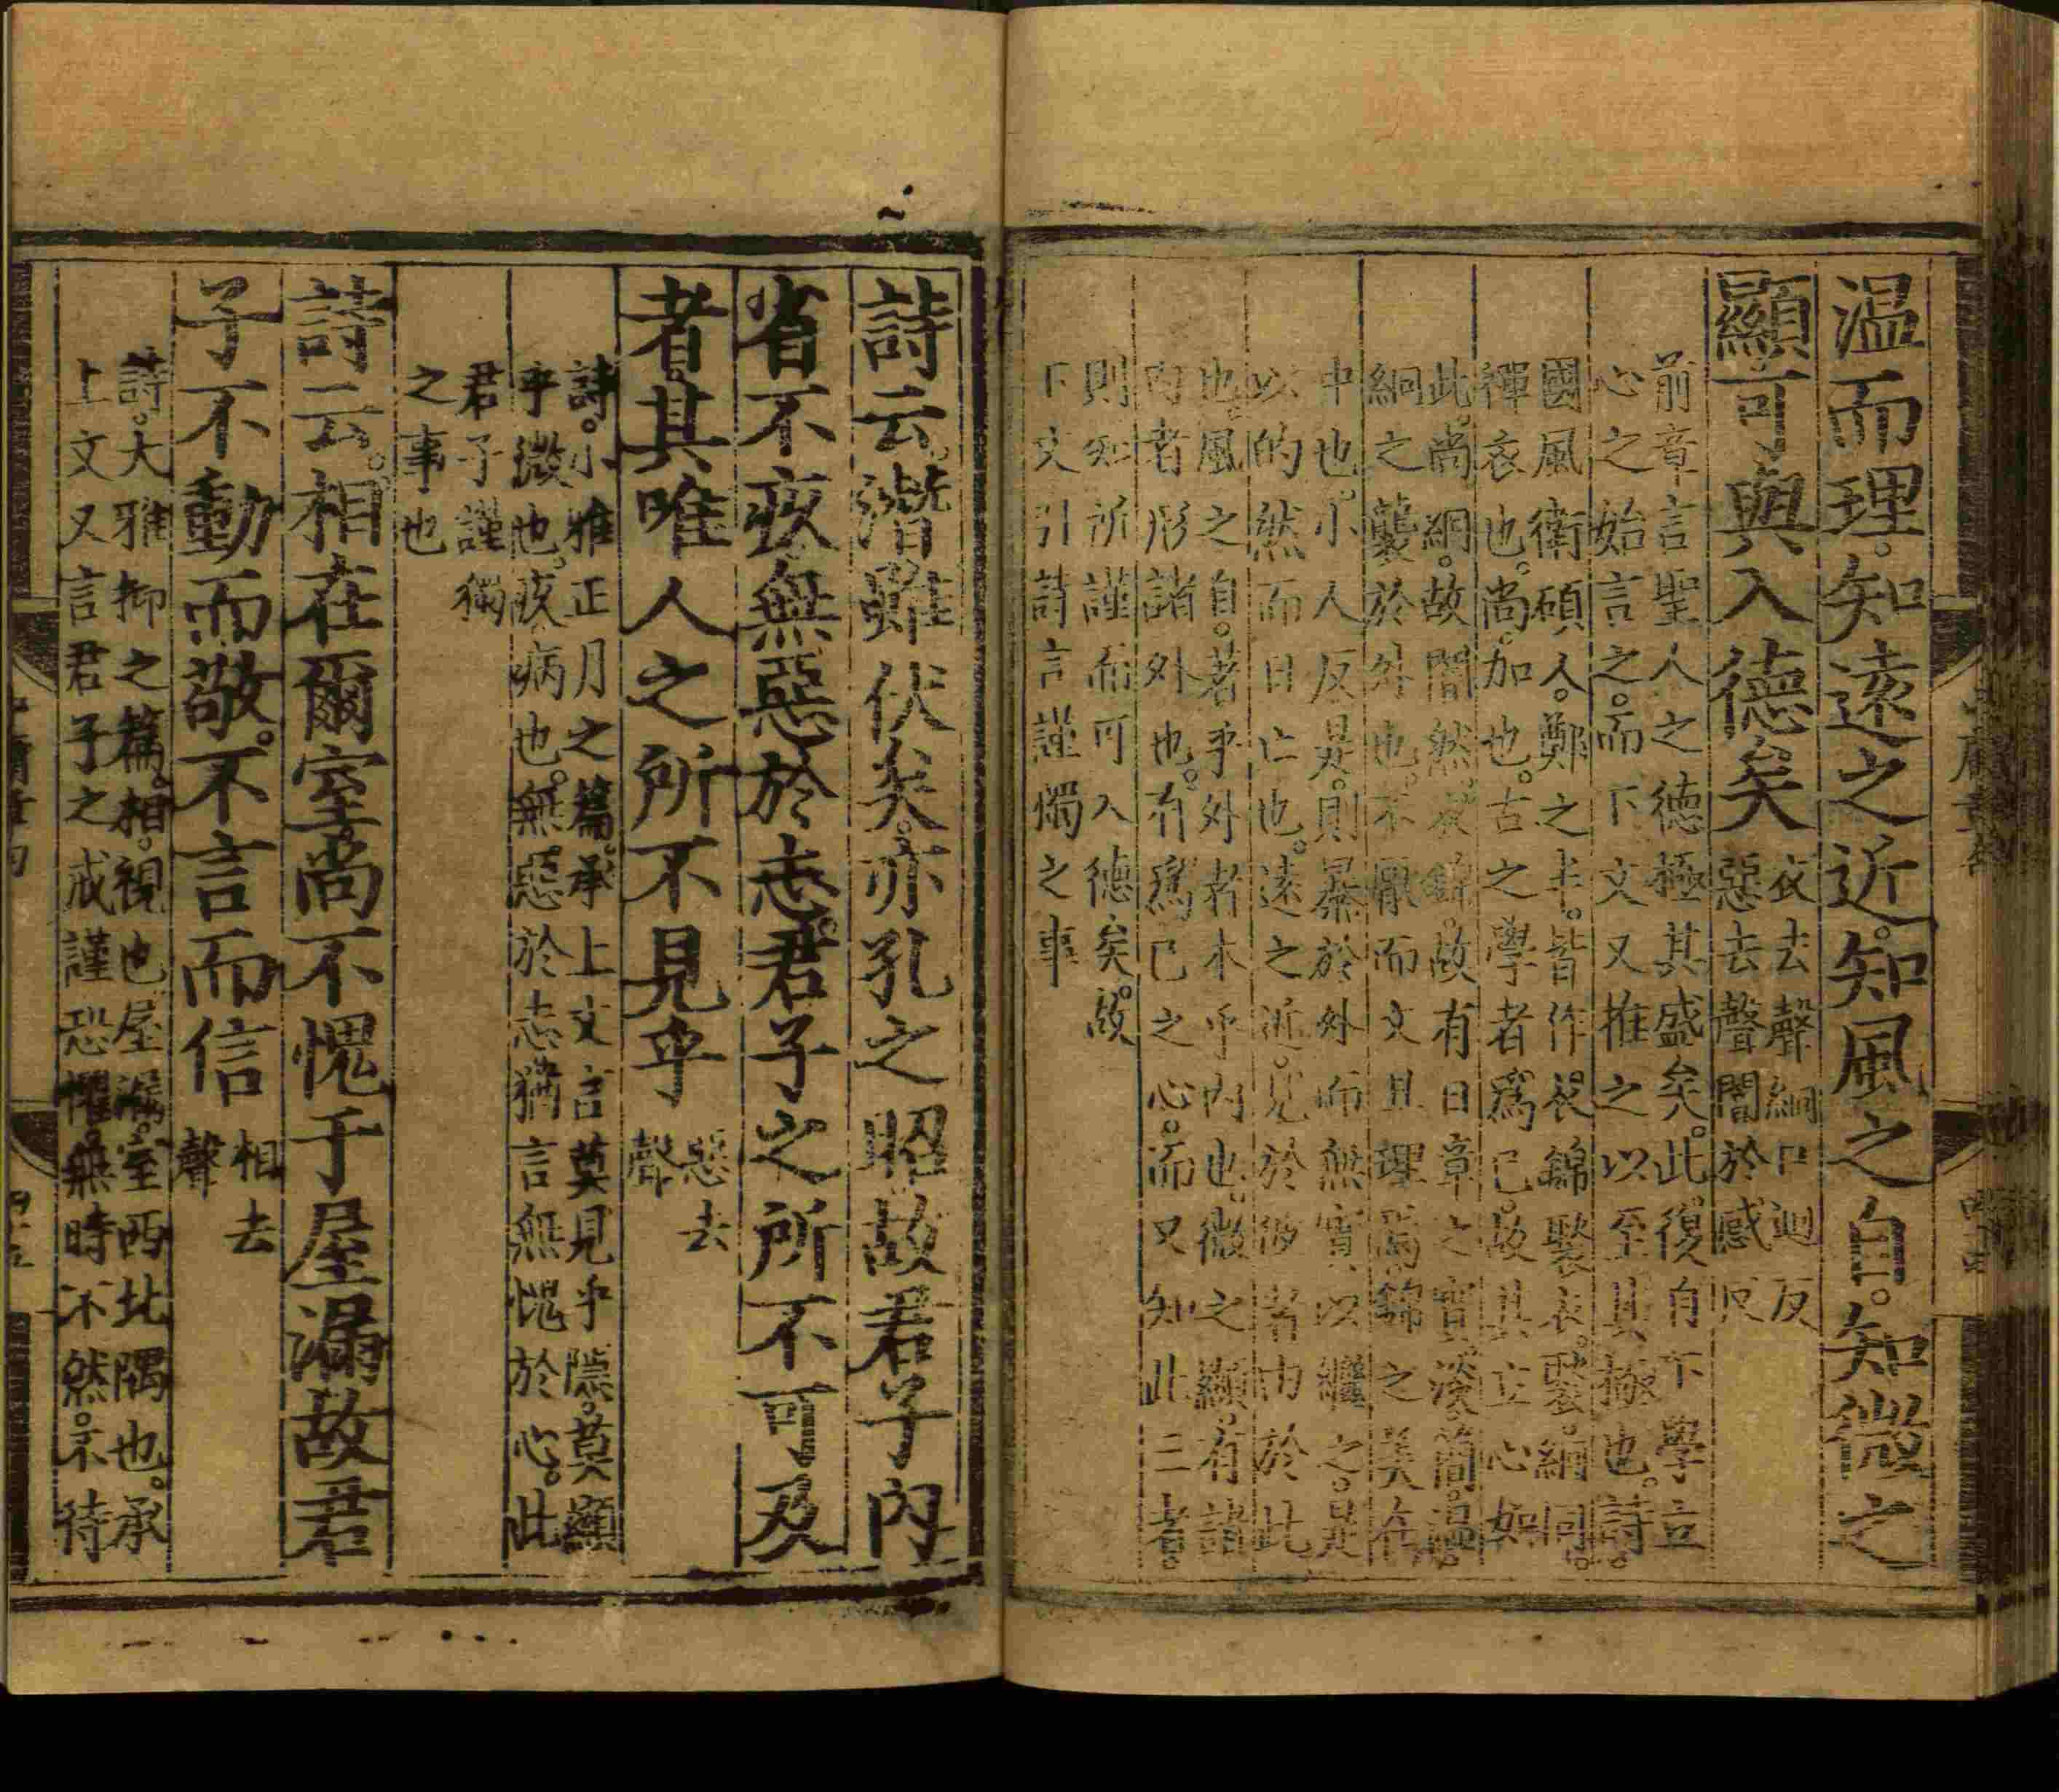 温而理。知遠之近。知風之自。知微之
顯。可與入德矣
衣去聲絅口迥反
惡去聲闇於感反
前章言聖人之德極其盛矣。此復自下學立
心之始言之。而下文又推之以至其極也。詩。
國風衛碩人。鄭之丰。皆作衣錦褧衣。褧。絅同。
禪衣也。尚。加也。古之學者爲己。故其立心如
此。尚絅。故闇然。衣錦。故有日章之實。淡簡。溫。
絅之襲於外也。不厭而文且理焉。錦之美在
中也。小人反是。則暴於外而無實以繼之。是
以的然而日亡也。遠之近。見於彼者由於此
也。風之自。著乎外者本乎內也。微之顯。有諸
內者形諸外也。有爲己之心。而又知此三者。
則知所謹而可入德矣。故
下文引詩言謹獨之事
詩云。潛雖伏矣。亦孔之昭。故君子內
省不疚。無惡於志。君子之所不可及
者。其唯人之所不見乎
惡去
聲
詩。小雅正月之篇。承上文言莫見乎隱。莫顯
乎微也。疚。病也。無惡於志。猶言無愧於心。此
君子謹獨
之事也
詩云。相在爾室。尚不愧于屋漏。故君
子不動而敬。不言而信
相去
聲
詩。大雅抑之篇。相。視也。屋漏。室西北隅也。承
上文又言君子之戒謹恐懼。無時不然。不待